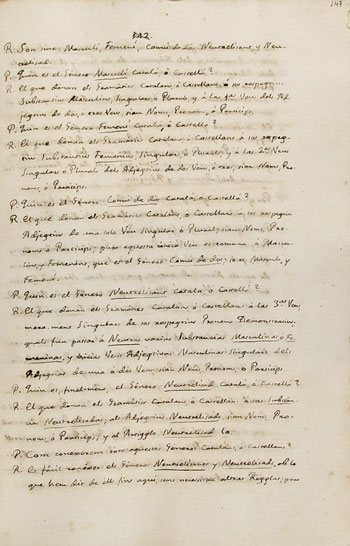 342.
R. Son sinc: Masculí, Femení, Comú de dos, Neutralisans, y Neu-
tralisad.
P. Quin es el Género Masculí Català, ó Castellá?
R. El que donan els Gramàtics Catalans, ó Castellans, á sos respegtius
Substantius Masculins Singulars, ó Plurals, y á la 1ª Veu del Ad-
jegtiu de dos, ó tres Veus, sian Noms, Pronoms, ó Particips.
P. Quin es el Género Femení Català, ó Castellá?
R. El que donan els Gramàtics Catalans, ó Castellans á sos respeg-
tius Substantius Femenins Singulars, ó Plurals, y á las 2ªs Veus
Singulars ó Plurals dels Adjegtius de dos Veus, ó tres, sian Noms, Pro-
noms, ó Particips.
P. Quin es el Género Comú de dos Català, ó Castellá?
R. El que donan els Gramàtics Catalans, ó Castellans á sos respegtius
Adjegtius de una sola Veu Singulars, ó Plurals, sian Noms, Pro-
noms, ó Particips; puix aquesta única Veu es comuna á Mascu-
lins, y Femenins, que es el Género Comú de dos: so es, Masculí, y
Femení.
P. Quin es el Género Neutralisans Català, ó Castellá?
R. El que donan els Gramàtics Catalans, ó Castellans á las 3ªs Veus
mes Singulars de sos respegtius Pronoms Demostratius,
quals fan passar á Neutros varios Substantius Masculins, ó Fe-
menins, y várias Veus Adjegtivas Masculinas Singulars dels
Adjegtius de una ó dos Veus, sian Noms, Pronoms, ó Particips.
P. Quin es, finalment, el Género Neutralisad Català, ó Castellá?
R. El que donan els Gramàtics Catalans, ó Castellans á sos
Neutralisados, als Adjegtius Neutralisads, sian Noms, Pro-
noms, ó Particips, y al Artiggle Neutralisad lo.
P. Com coneixerem tots aquestos Géneros Catalans, ó Castellans?
R. Es fácil conéixer els Géneros Neutralisans y Neutralisads, ab lo
que hem dit de ells fins aquí sens necessitat de altras Régglas, pero